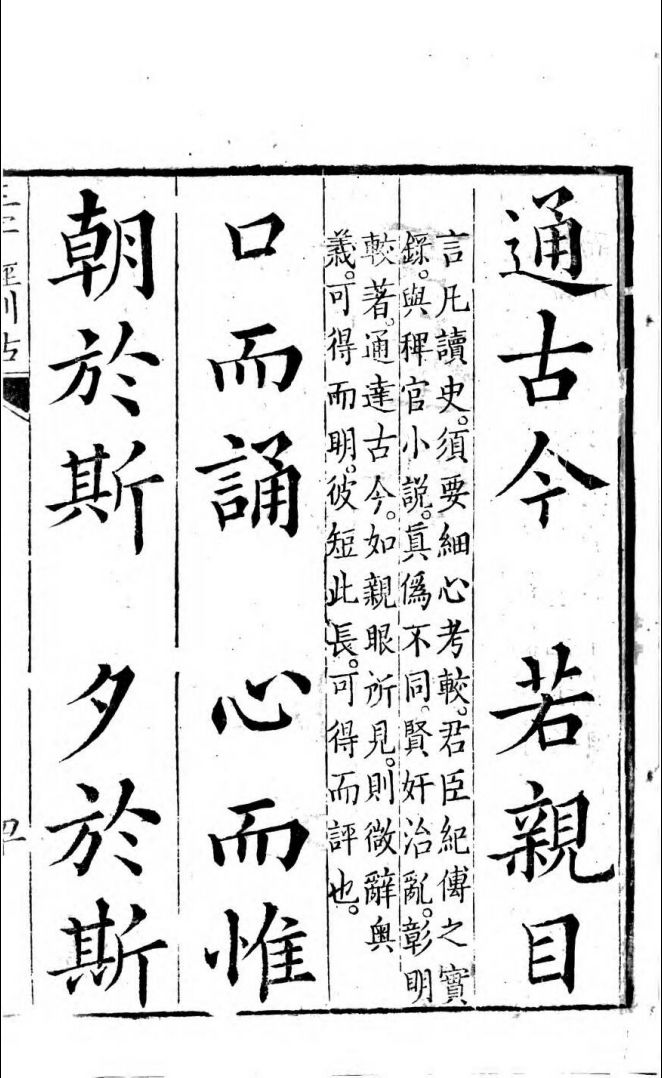 通古今　若親目
言凡讀史。須要細心考較。君臣紀傳之實
錄。與稗官小說。真偽不同。賢奸治亂。彰明
較著。通達古今。如親眼所見。則微辭奧
義。可得而明。彼短此長。可得而評也。
口而誦　心而惟
朝於斯　夕於斯